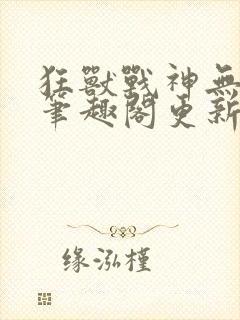 狂獸戰神無
筆趣閣更新
缘泓槿